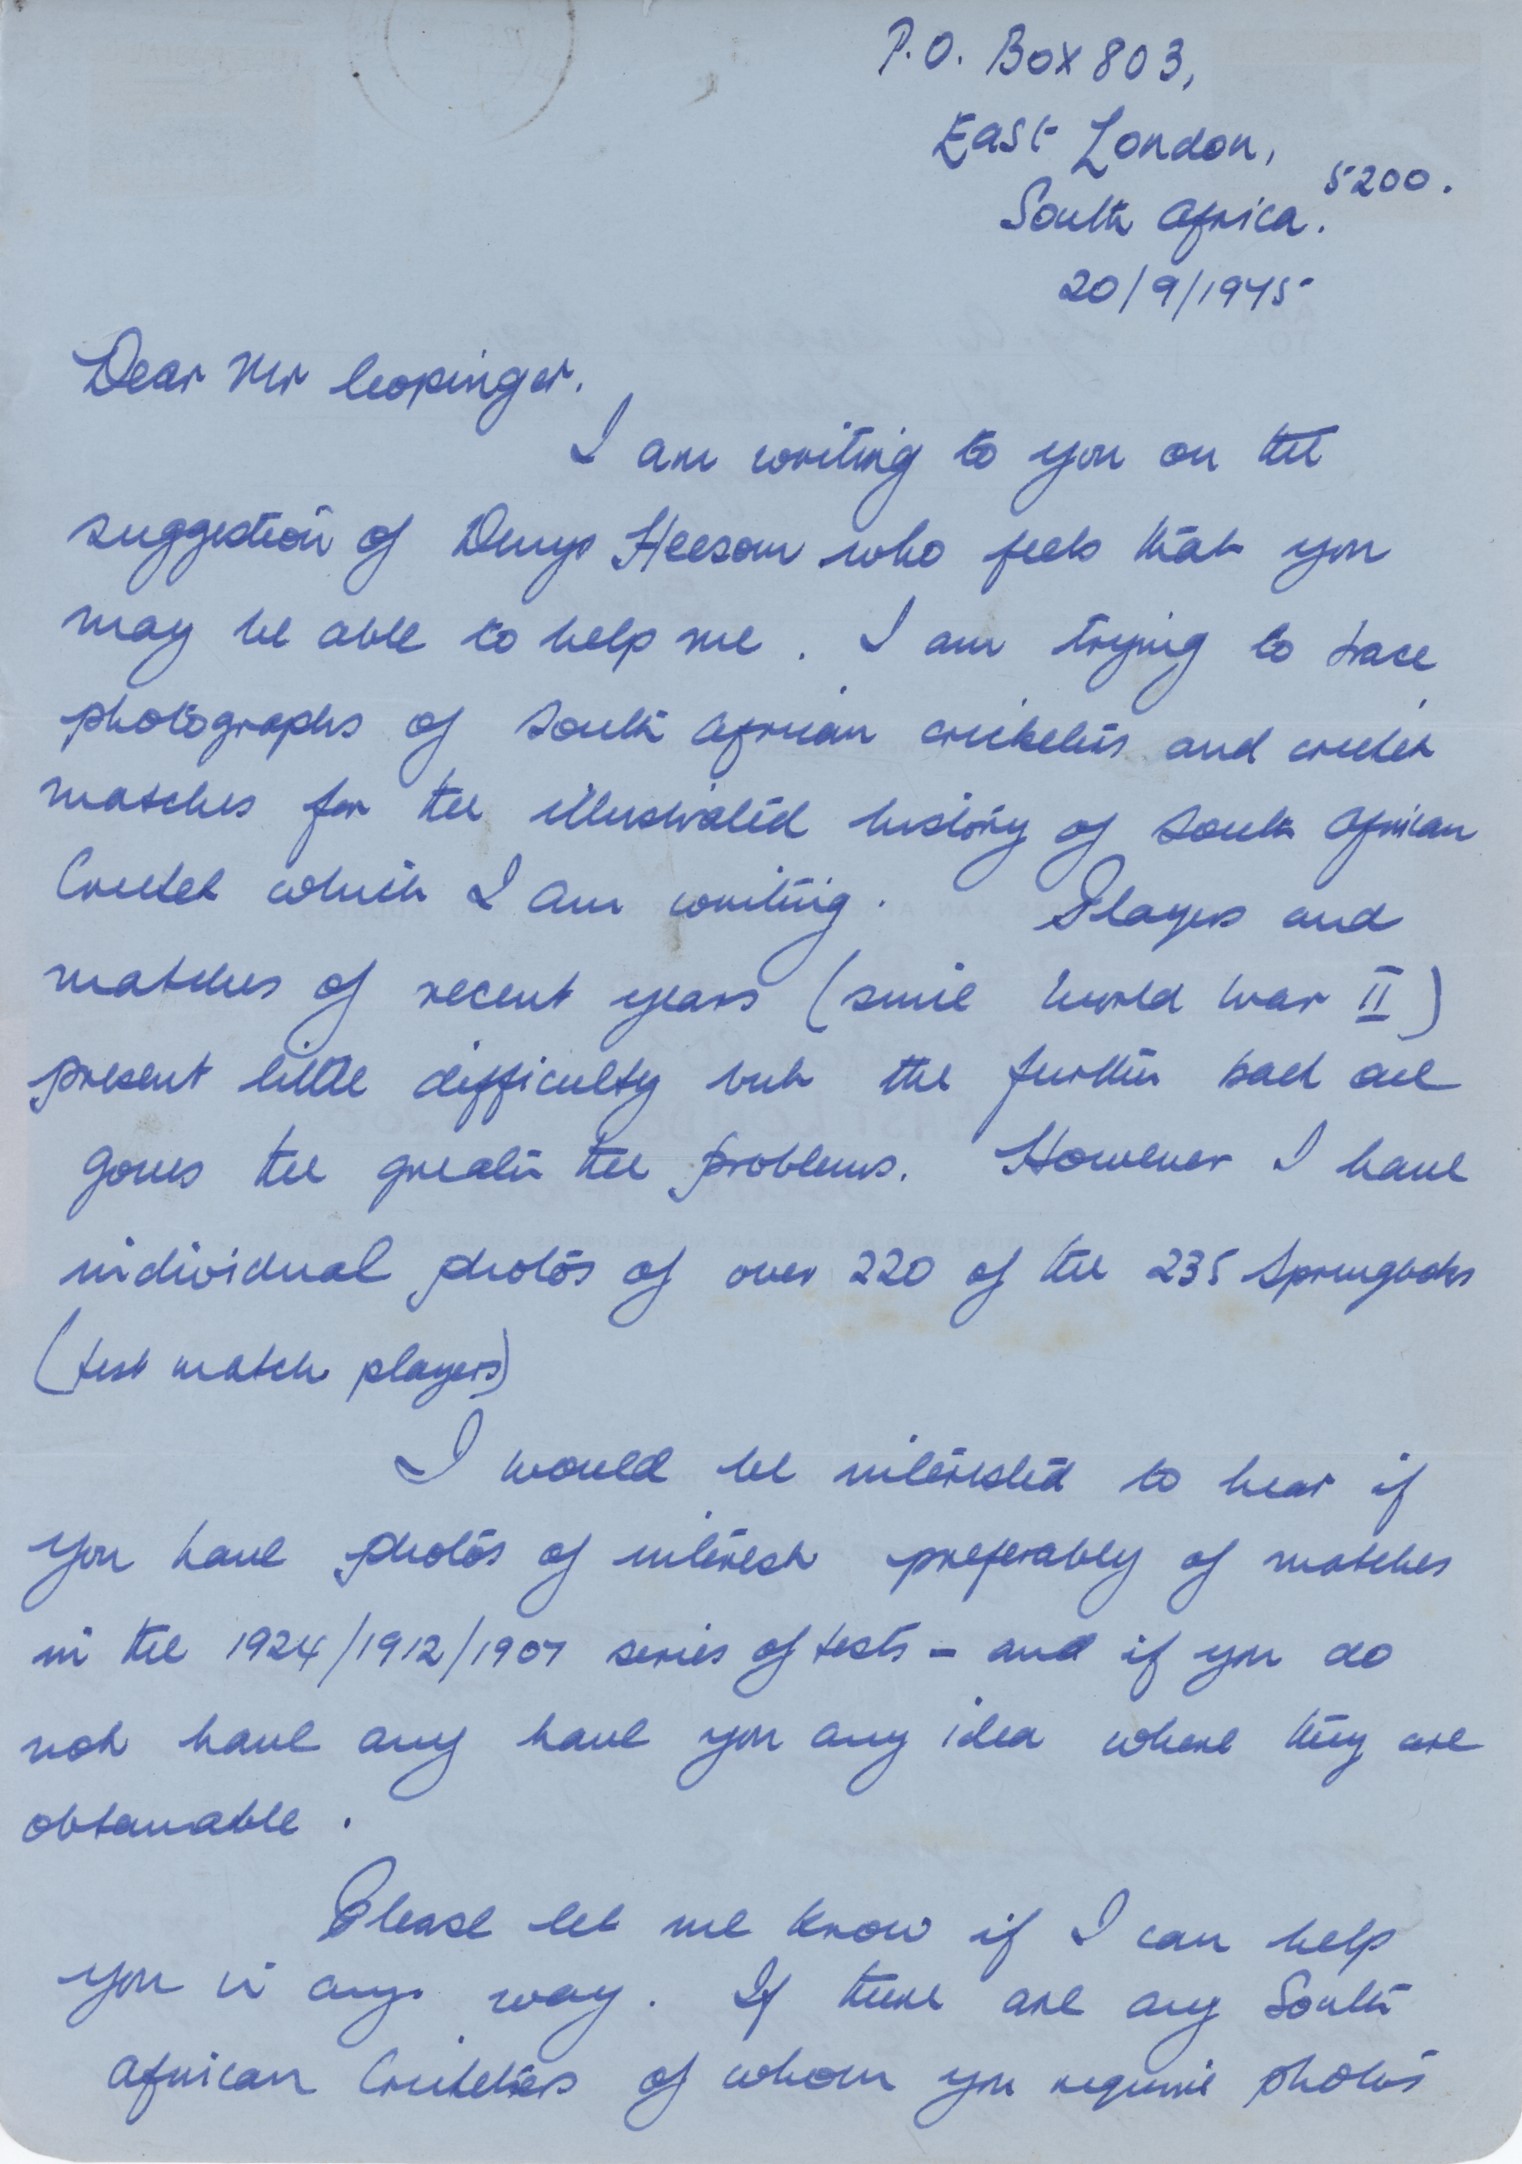 P.O. Box 803,
East London,
5200.
South Africa.
20/9/1975
Dear Mr Copinger.
I am writing to you on the
suggestion of Denys Heesom who feels that you
may be able to help me. I am trying to trace
photographs of South African cricketers and cricket
matches for the illustrated history of South African
Cricket which I am writing. Players and
matches of recent years (since World War II)
present little difficulty but the further back one
goes the greater the problems. However I have
individual photos of over 220 of the 235 Springboks
(test match players)
I would be interested to hear if
you have photos of interest preferably of matches
in the 1924/1912/1907 series of tests - and if you do
not have any have you any idea where they are
obtainable.
Please let me know if I can help
you in any way. If there are any South
African Cricketers of whom you require photos